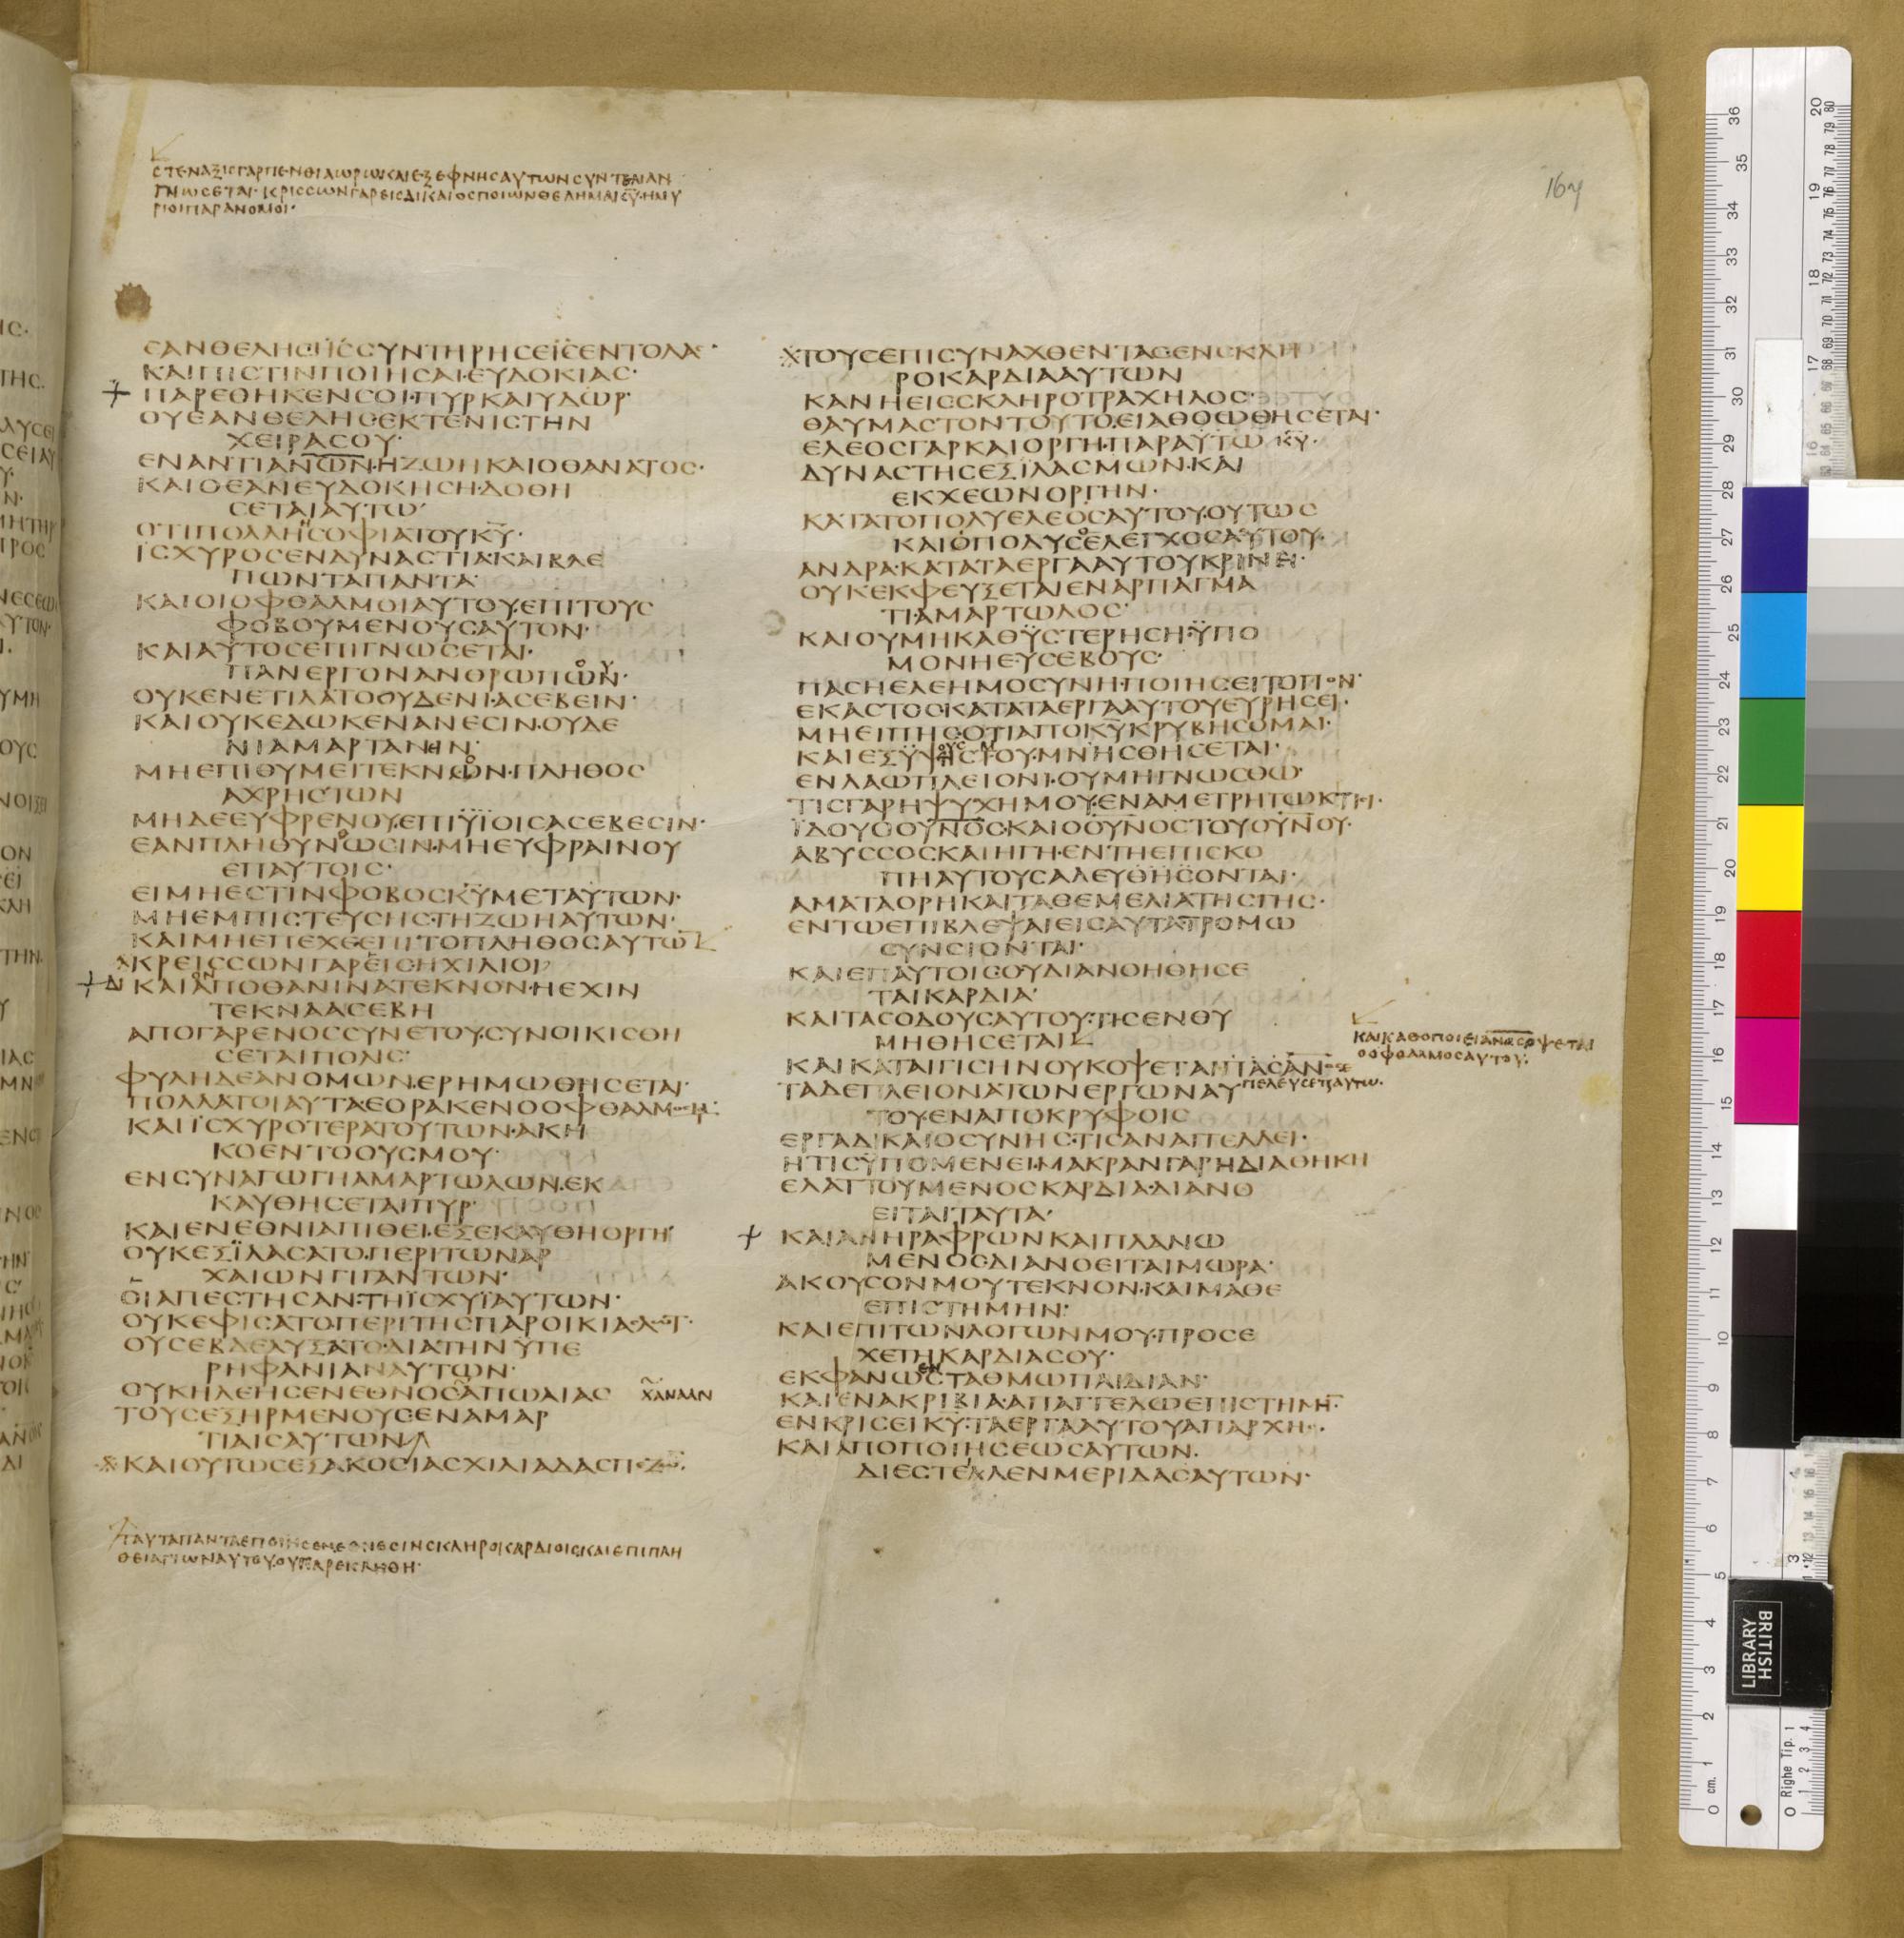 ϹΤΕΝΑΞΙϹΓΑΡΠΕΝΘΙΑΩΡΙΩΚΑΙΕΞΕΦΝΗϹΑΥΤΩΝϹΥΝΤΕΛΙΑΝ
ΓΝΩϹΕΤΑΙ· ΚΡΙϹϹΩΝΓΑΡΕΙϹΔΙΚΑΙΟϹΠΟΙΩΝΘΕΛΗΜΑΚΥ·ΗΜΥ
ΡΙΟΙΠΑΡΑΝΟΜΟΙ·
ΕΑΝΘΕΛΗϹΗϹϹΥΝΤΗΡΗϹΕΙϹΕΝΤΟΛΑϹ·
ΚΑΙΠΙϹΤΙΝΠΟΙΗϹΑΙ·ΕΥΔΟΚΙΑϹ·
ΠΑΡΕΘΗΚΕΝϹΟΙ·ΠΥΡΚΑΙΥΔΩΡ·
ΟΥΕΑΝΘΕΛΗϹΕΚΤΕΝΙϹΤΗΝ
ΧΕΙΡΑϹΟΥ·
ΕΝΑΝΤΙΑΝΩΝ·ΗΖΩΗΚΑΙΟΘΑΝΑΤΟϹ·
ΚΑΙΟΕΑΝΕΥΔΟΚΗϹΗ·ΔΟΘΗ
ϹΕΤΑΙΑΥΤΩ·
ΟΤΙΠΟΛΛΗΗϹΟΦΙΑΤΟΥΚΥ·
ΪϹΧΥΡΟϹΕΝΔΥΝΑϹΤΙΑ·ΚΑΙΒΛΕ
ΠΩΝΤΑΠΑΝΤΑ·
ΚΑΙΟΙΟΦΘΑΛΜΟΙΑΥΤΟΥ·ΕΠΙΤΟΥϹ
ΦΟΒΟΥΜΕΝΟΥϹΑΥΤΟΝ·
ΚΑΙΑΥΤΟϹΕΠΙΓΝΩϹΕΤΑΙ·
ΠΑΝΕΡΓΟΝΑΝΘΡΩΠΩΝ·
ΟΥΚΕΝΕΤΙΛΑΤΟΟΥΔΕΝΙ·ΑϹΕΒΕΙΝ·
ΚΑΙΟΥΚΕΔΩΚΕΝΑΝΕϹΙΝ·ΟΥΔΕ
ΝΙΑΜΑΡΤΑΝΙΝ·
ΜΗΕΠΙΘΥΜΕΙΤΕΚΝΩΝ·ΠΛΗΘΟϹ
ΑΧΡΗϹΤΩΝ
ΜΗΔΕΕΥΦΡΕΝΟΥ·ΕΠΙΫΪΟΙϹΑϹΕΒΕϹΙΝ·
ΕΑΝΠΛΗΘΥΝΩϹΙΝ·ΜΗΕΥΦΡΑΙΝΟΥ
ΕΠΑΥΤΟΙϹ·
ΕΙΜΗΕϹΤΙΝΦΟΒΟϹΚΥΜΕΤΑΥΤΩΝ·
ΜΗΕΜΠΙϹΤΕΥϹΗϹ·ΤΗΖΩΗΑΥΤΩΝ·
ΚΑΙΜΗΕΠΕΧΕΕΠΙΤΟΠΛΗΘΟϹΑΥΤΩ
ΚΡΕΙϹϹΩΝΓΑΡΕΙϹΗΧΙΛΙΟΙ
ΚΑΙΑΠΟΘΑΝΙΝΑΤΕΚΝΟΝ·ΗΕΧΙΝ
ΤΕΚΝΑΑϹΕΒΗ
ΑΠΟΓΑΡΕΝΟϹϹΥΝΕΤΟΥ·ϹΥΝΟΙΚΙϹΘΗ
ϹΕΤΑΙΠΟΛΙϹ·
ΦΥΛΗΔΕΑΝΟΜΩΝ·ΕΡΗΜΩΘΗϹΕΤΑΙ·
ΠΟΛΛΑΤΟΙΑΥΤΑΕΟΡΑΚΕΝΟΟΦΘΑΛΜΟϹΜ
ΚΑΙΪϹΧΥΡΟΤΕΡΑΤΟΥΤΩΝ·ΑΚΗ
ΚΟΕΝΤΟΟΥϹΜΟΥ·
ΕΝϹΥΝΑΓΩΓΗΑΜΑΡΤΩΛΩΝ·ΕΚ
ΚΑΥΘΗϹΕΤΑΙΠΥΡ·
ΚΑΙΕΝΕΘΝΙΑΠΙΘΕΙ·ΕΞΕΚΑΥΘΗΟΡΓΗ·
ΟΥΚΕΞΪΛΑϹΑΤΟ·ΠΕΡΙΤΩΝΑΡ
ΧΑΙΩΝΓΙΓΑΝΤΩΝ·
ΟΙΑΠΕϹΤΗϹΑΝ·ΤΗΪϹΧΥΪΑΥΤΩΝ·
ΟΥΚΕΦΙϹΑΤΟΠΕΡΙΤΗϹΠΑΡΟΙΚΙΑϹΛΩΤ·
ΟΥϹΕΒΔΕΛΥΞΑΤΟ·ΔΙΑΤΗΝΥΠΕ
ΡΗΦΑΝΙΑΝΑΥΤΩΝ·
ΟΥΚΗΛΕΗϹΕΝΕΘΝΟϹΑΠΩΛΙΑϹ ΧΑΝΑΑΝ
ΤΟΥϹΕΞΗΡΜΕΝΟΥϹΕΝΑΜΑΡ
ΤΙΑΙϹΑΥΤΩΝ
ΚΑΙΟΥΤΩϹΕΞΑΚΟϹΙΑϹΧΙΛΙΑΔΑϹΠΕΖΩ
ΤΑΥΤΑΠΑΝΤΑΕΠΟΙΗϹΕΝΕΘΝΕϹΙΝϹΚΛΗΡΟΚΑΡΔΙΟΙϹΚΑΙΕΠΙΠΛΗ
ΘΕΙΑΓΙΩΝΑΥΤΟΥ·ΟΥΠΑΡΕΚΛΗΘΗ·
164
ΤΟΥϹΕΠΙϹΥΝΑΧΘΕΝΤΑϹΕΝϹΚΛΗ
ΡΟΚΑΡΔΙΑΑΥΤΩΝ
ΚΑΝΗΕΙϹϹΚΛΗΡΟΤΡΑΧΗΛΟϹ·
ΘΑΥΜΑϹΤΟΝΤΟΥΤΟ·ΕΙΑΘΟΩΘΗϹΕΤΑΙ·
ΕΛΕΟϹΓΑΡΚΑΙΟΡΓΗ·ΠΑΡΑΥΤΩΚΥ·
ΔΥΝΑϹΤΗϹΕΞΪΛΑϹΜΩΝ·ΚΑΙ
ΕΚΧΕΩΝΟΡΓΗΝ·
ΚΑΤΑΤΟΠΟΛΥΕΛΕΟϹΑΥΤΟΥ·ΟΥΤΩϹ
ΚΑΙΟΠΟΛΥϹΕΛΕΓΧΟϹΑΥΤΟΥ·
ΑΝΔΡΑ·ΚΑΤΑΤΑΕΡΓΑΑΥΤΟΥΚΡΙΝΕΙ·
ΟΥΚΕΚΦΕΥΞΕΤΑΙΕΝΑΡΠΑΓΜΑ
ΤΙ·ΑΜΑΡΤΩΛΟϹ·
ΚΑΙΟΥΜΗΚΑΘΫϹΤΕΡΗϹΗ·ΫΠΟ
ΜΟΝΗΕΥϹΕΒΟΥϹ·
ΠΑϹΗΕΛΕΗΜΟϹΥΝΗ·ΠΟΙΗϹΕΙΤΟΠΟΝ·
ΕΚΑϹΤΟϹ·ΚΑΤΑΤΑΕΡΓΑΑΥΤΟΥΕΥΡΗϹΕΙ·
ΜΗΕΙΠΗϹΟΤΙΑΠΟΚΥΚΡΥΒΗϹΟΜΑΙ·
ΚΑΙΕΞΫΨΙϹΤΟΥ·ΜΝΗϹΘΗϹΕΤΑΙ·
ΕΝΛΑΩΠΛΕΙΟΝΙ·ΟΥΜΗΓΝΩϹΘΩ·
ΤΙϹΓΑΡΗΨΥΧΗΜΟΥ·ΕΝΑΜΕΤΡΗΤΩΚΤΙϹΙ·
ΪΔΟΥΟΟΥΝΟϹ·ΚΑΙΟΟΥΝΟϹΤΟΥΟΥΝΟΥ·
ΑΒΥϹϹΟϹ·ΚΑΙΗΓΗ·ΕΝΤΗΕΠΙϹΚΟ
ΠΗΑΥΤΟΥϹΑΛΕΥΘΗϹΟΝΤΑΙ·
ΑΜΑΤΑΟΡΗΚΑΙΤΑΘΕΜΕΛΙΑΤΗϹΓΗϹ·
ΕΝΤΩΕΠΙΒΛΕΨΑΙΕΙϹΑΥΤΑΤΡΟΜΩ
ϹΥΝϹΙΟΝΤΑΙ·
ΚΑΙΕΠΑΥΤΟΙϹΟΥΔΙΑΝΟΗΘΗϹΕ
ΤΑΙΚΑΡΔΙΑ·
ΚΑΙΤΑϹΟΔΟΥϹΑΥΤΟΥ·ΤΙϹΕΝΘΥ
ΜΗΘΗϹΕΤΑΙ
ΚΑΙΚΑΘΟΠΟΙΕΙΑΝΟϹΟΨΕΤΑΙ
ΟΟΦΘΑΛΜΟϹΑΥΤΟΥ·
ΚΑΙΚΑΤΑΙΓΙϹΗΝΟΥΚΟΨΕΤΑΙ
ΤΑΔΕΠΛΕΙΟΝΑΤΩΝΕΡΓΩΝΑΥ
ΤΟΥ·ΕΝΑΠΟΚΡΥΦΟΙϹ
ΕΡΓΑΔΙΚΑΙΟϹΥΝΗϹ·ΤΙϹΑΝΑΓΓΕΛΛΕΙ·
ΗΤΙϹΫΠΟΜΕΝΕΙ·ΜΑΚΡΑΝΓΑΡΗΔΙΑΘΗΚΗ
ΕΛΑΤΤΟΥΜΕΝΟϹΚΑΡΔΙΑ·ΔΙΑΝΟ
ΕΙΤΑΙΤΑΥΤΑ·
ΚΑΙΑΝΗΡΑΦΡΩΝΚΑΙΠΛΑΝΩ
ΜΕΝΟϹΔΙΑΝΟΕΙΤΑΙΜΩΡΑ·
ΑΚΟΥϹΟΝΜΟΥΤΕΚΝΟΝ·ΚΑΙΜΑΘΕ
ΕΠΙϹΤΗΜΗΝ·
ΚΑΙΕΠΙΤΩΝΛΟΓΩΝΜΟΥ·ΠΡΟϹΕ
ΧΕΤΗΚΑΡΔΙΑϹΟΥ·
ΕΚΦΑΝΩΕΝϹΤΑΘΜΩΠΑΙΔΙΑΝ·
ΚΑΙΕΝΑΚΡΙΒΙΑ·ΑΠΑΓΓΕΛΩΕΠΙϹΤΗΜΗ
ΕΝΚΡΙϹΕΙΚΥ·ΤΑΕΡΓΑΑΥΤΟΥΑΠΑΡΧΗϹ·
ΚΑΙΑΠΟΠΟΙΗϹΕΩϹΑΥΤΩΝ·
ΔΙΕϹΤΕΙΛΕΝΜΕΡΙΔΑϹΑΥΤΩΝ·
BRITISH
LIBRARY
0 cm. 1 2 3 4 5 6 7 8 9 10 11 12 13 14 15 16 17 18 19 20 21 22 23 24 25 26 27 28 29 30 31 32 33 34 35 36
0 Righe Tip. 1